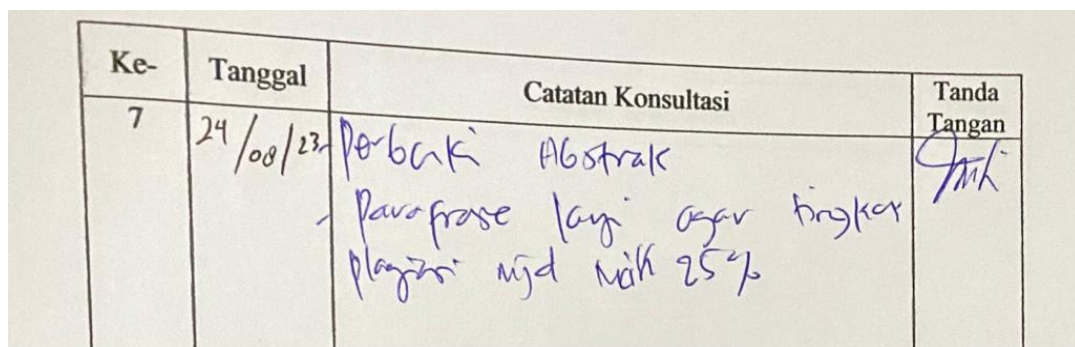 Ke- Tanggal Catatan Konsultasi Tanda Tangan
7 24/08/23 - Perbaiki Abstrak
- Parafrase lagi agar tingkat
plagiasi mjd 25%